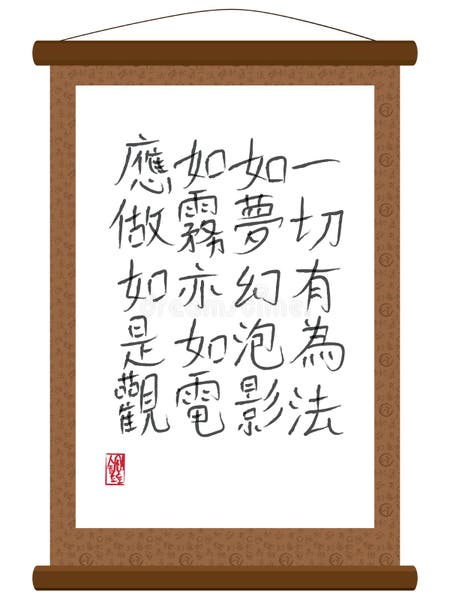 一切有為法
如夢幻泡影
如霧亦如電
應做如是觀